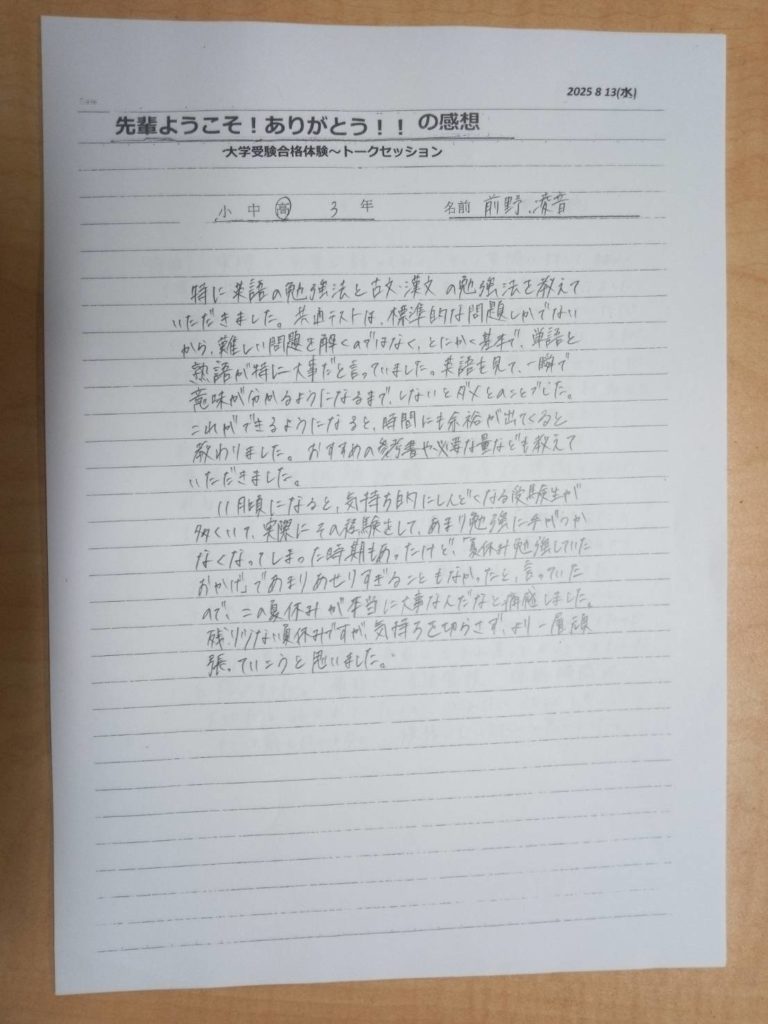 2025 8 13(水)
先輩ようこそ！ありがとう！！ の感想
大学受験合格体験～トークセッション
小 中 高 3 年 名前 前野 凌音
特に英語の勉強法と古文・漢文の勉強法を教えて
いただきました。共通テストは、標準的な問題しかでない
から、難しい問題を解くのではなく、とにかく基本で、単語と
熟語が特に大事だと言っていました。英語を見て、一瞬で
意味が分かるようになるまで、しないとダメとのことでした。
これができるようになると、時間にも余裕が出てくると
教わりました。おすすめの参考書や必要な量なども教えて
いただきました。
11月頃になると、気持ち的にしんどくなる受験生が
多くいて、実際にその経験をして、あまり勉強に手がつか
なくなってしまった時期もあったけど、「夏休み勉強していた
おかげ」であまりあせりすぎることもなかったと、言っていた
ので、この夏休みが本当に大事なんだなと痛感しました。
残り少ない夏休みですが、気持ちを切らさず、より一層頑
張っていこうと思いました。